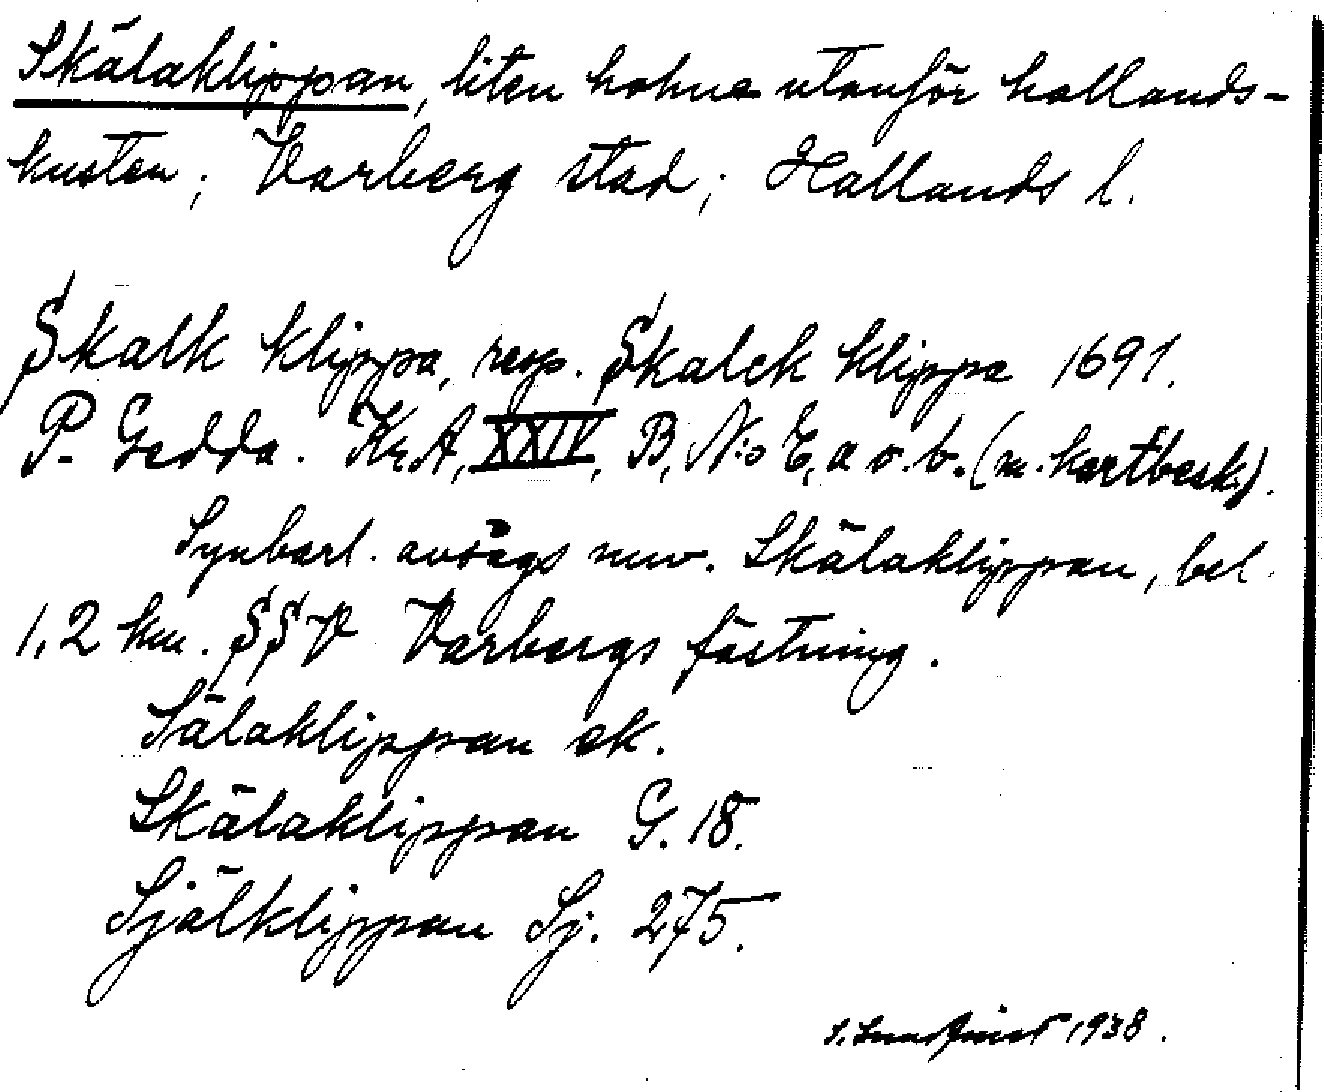 Skälaklippan, liten holme utanför hallands-
kusten; Varberg stad; Hallands l.
Skalk klippa, resp. Skalck klippa 1691.
P. Gedda. Kr.A, XXIV, B, N:o E, a o. b. (m. kartbesk.).
Synbarl. avsågs nuv. Skälaklippan, bel.
1,2 km. SSV Varbergs fästning.
Sälaklippan ek.
Skälaklippan G. 18.
Själklippan Sj. 275.
S. Lundquist 1938.